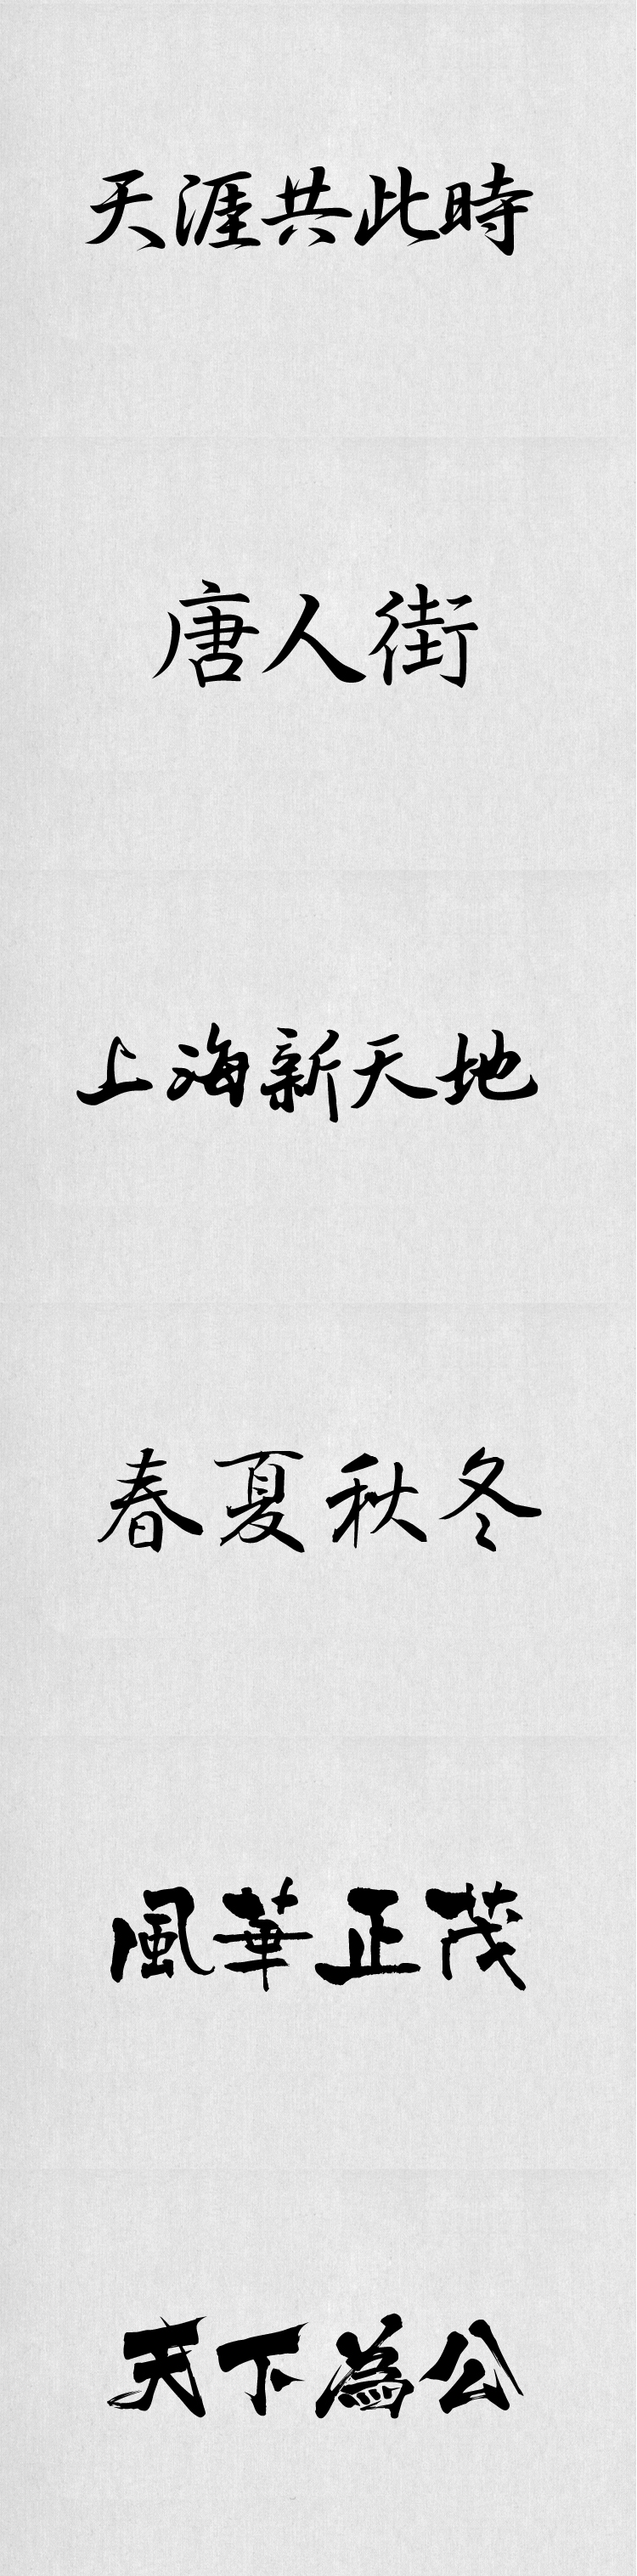 天涯共此時
唐人街
上海新天地
春夏秋冬
風華正茂
天下為公